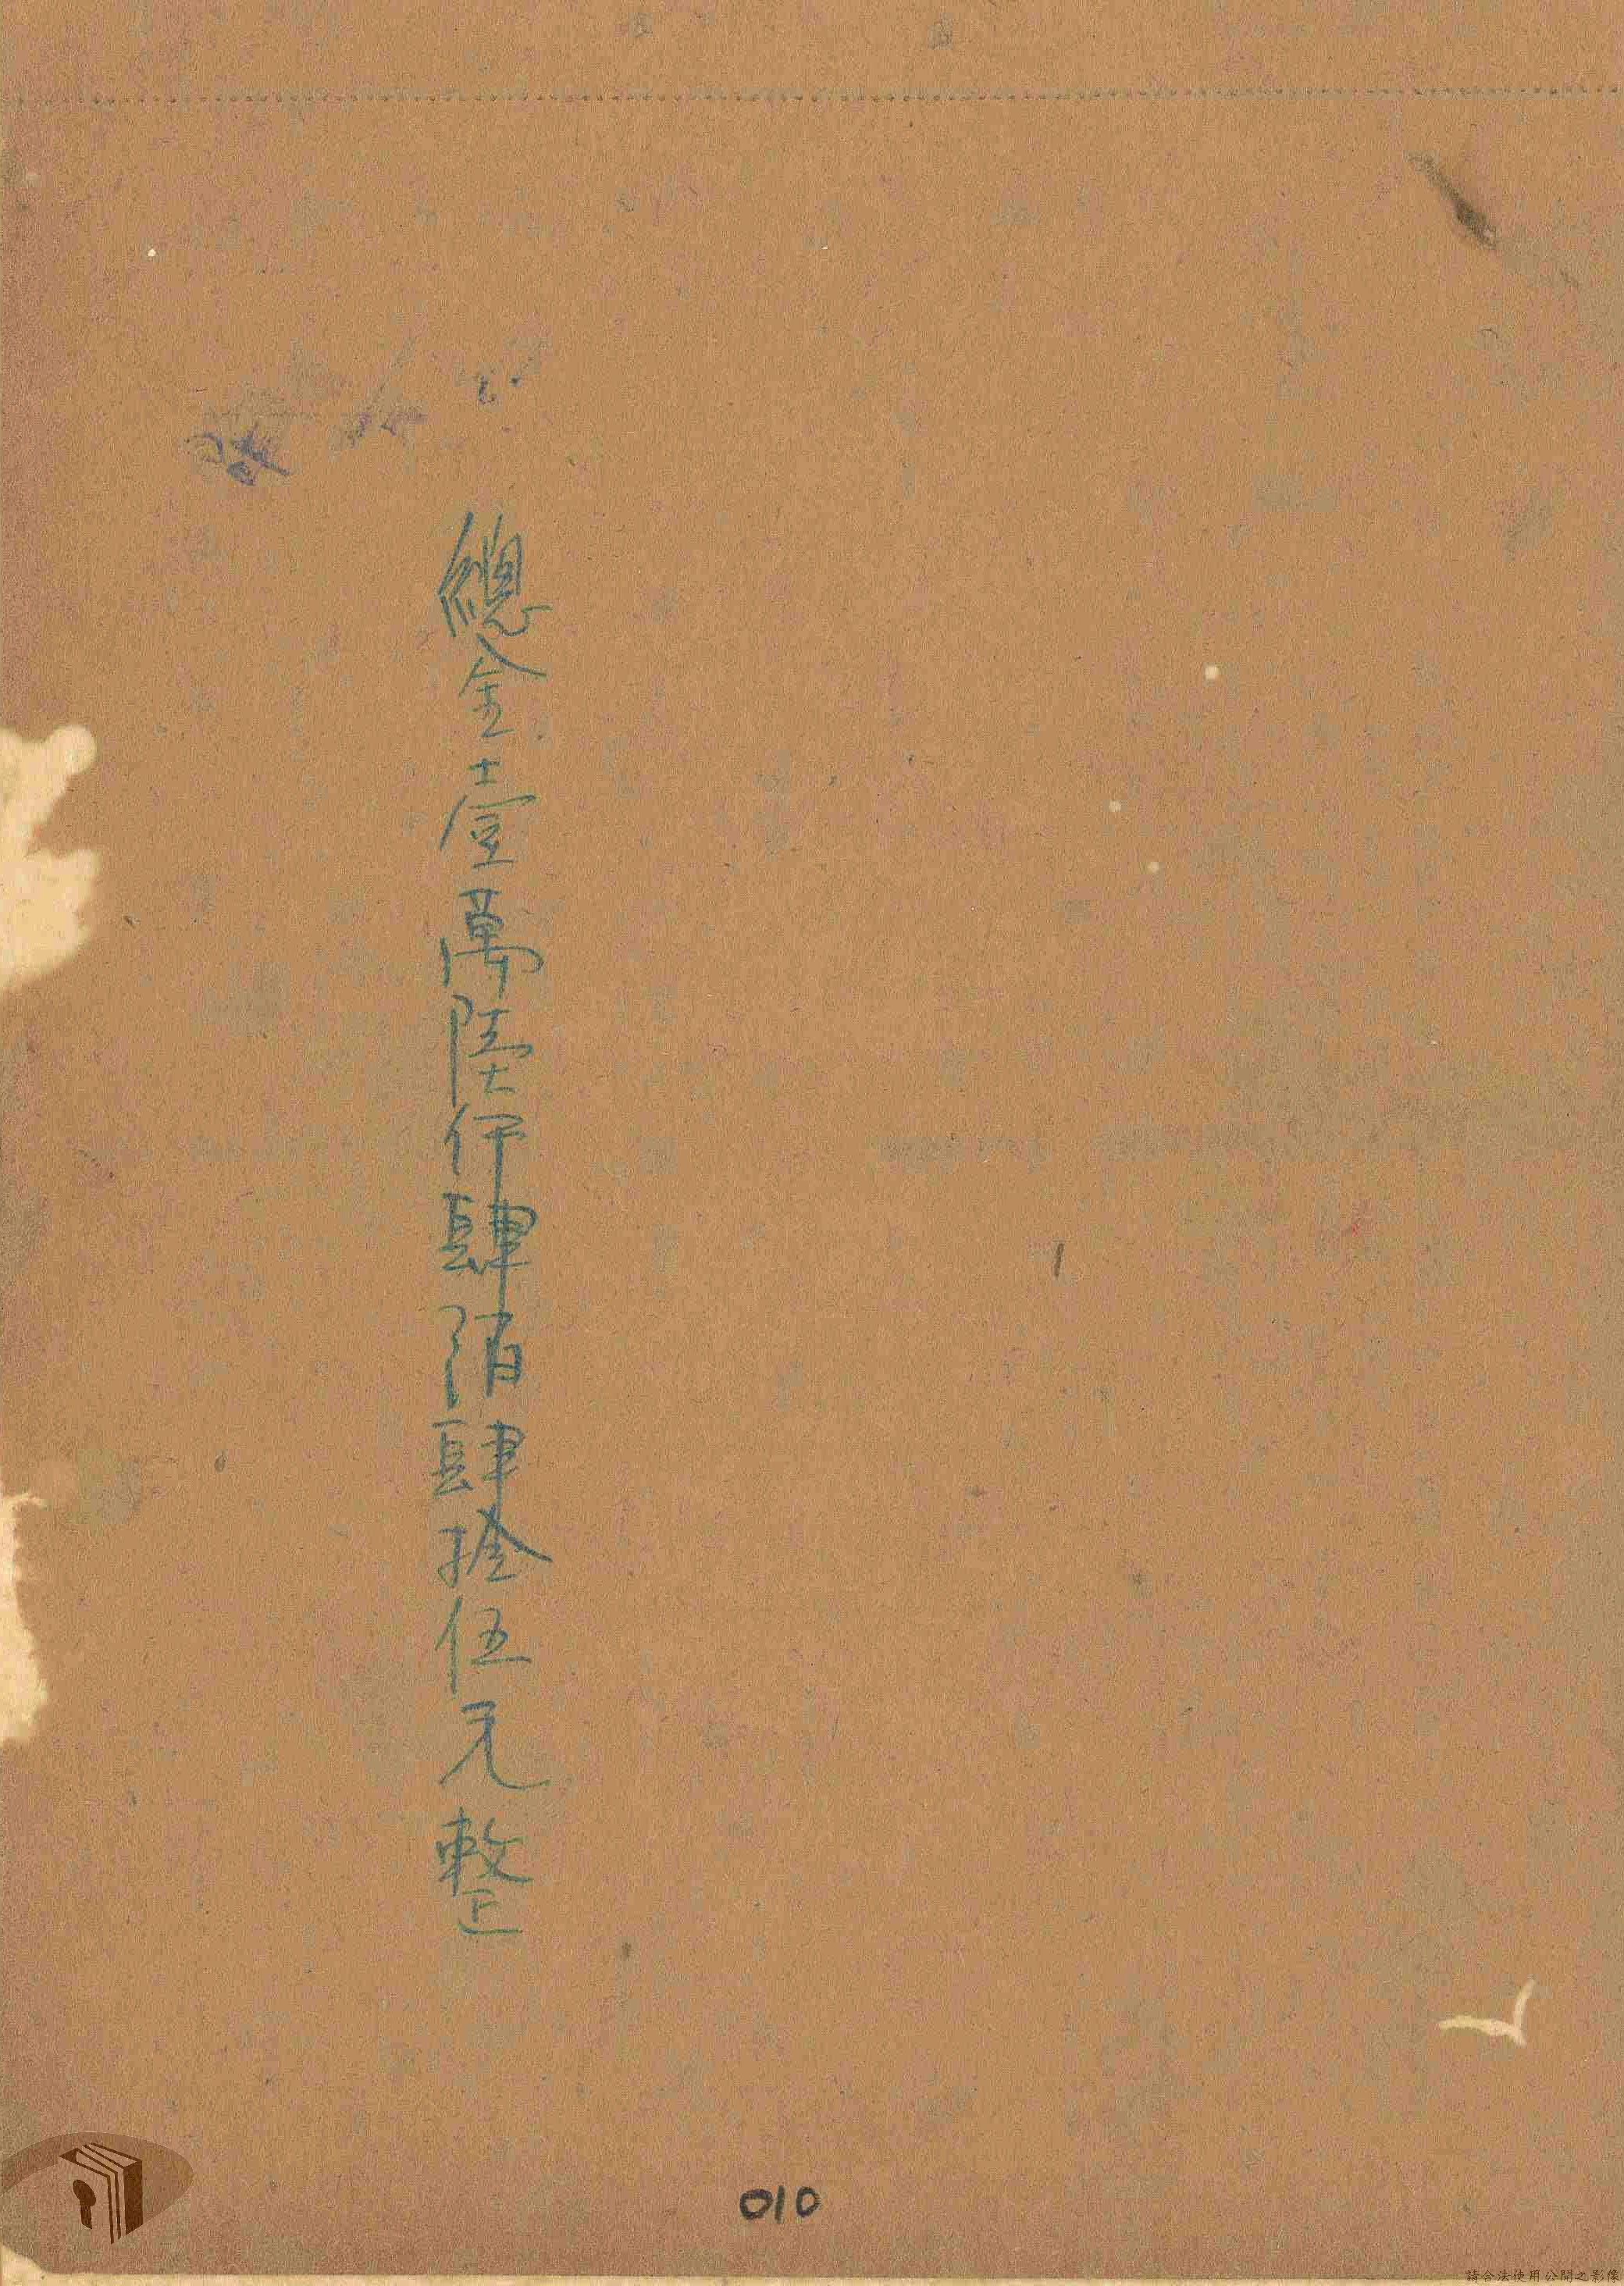 總金壹萬陸仟肆佰肆拾伍元整
010
請合法使用公開之影像